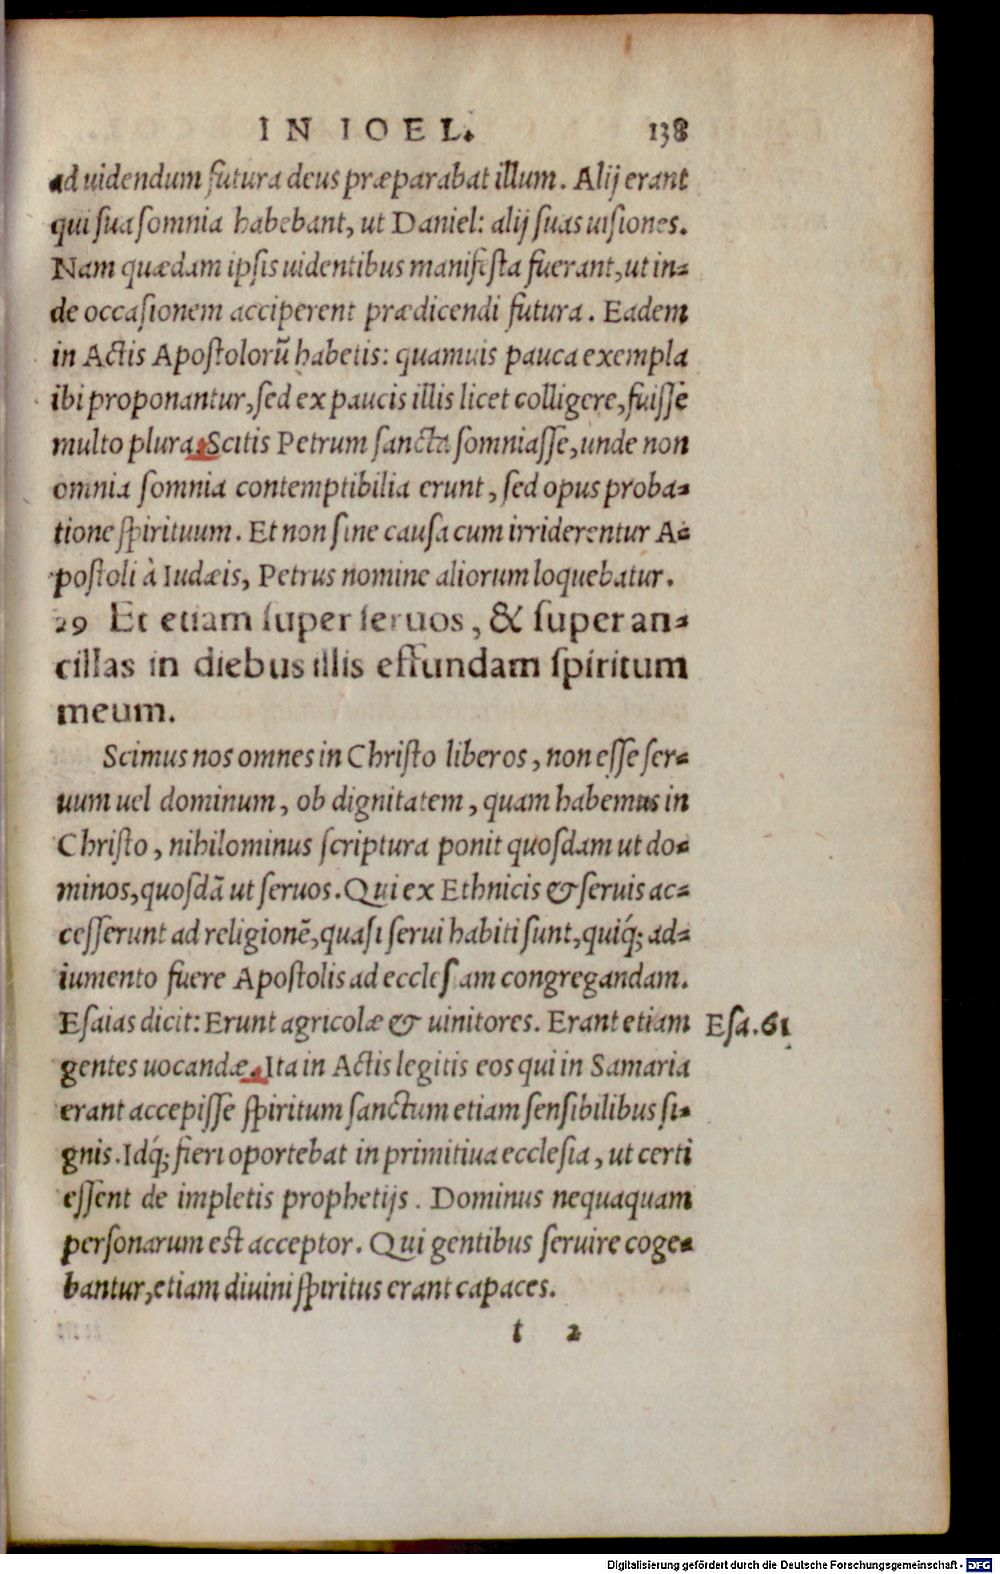 IN IOEL. 138
ad uidendum futura deus præparabat illum. Alij erant
qui sua somnia habebant, ut Daniel: alij suas uisiones.
Nam quædam ipsis uidentibus manifesta fuerant, ut in-
de occasionem acciperent prædicendi futura. Eadem
in Actis Apostolorũ habetis: quamuis pauca exempla
ibi proponantur, sed ex paucis illis licet colligere, fuisse
multo plura. Scitis Petrum sancta somniasse, unde non
omnia somnia contemptibilia erunt, sed opus proba-
tione spirituum. Et non sine causa cum irriderentur A-
postoli à Iudæis, Petrus nomine aliorum loquebatur.
29 Et etiam super seruos, & super an-
cillas in diebus illis effundam spiritum
meum.
Scimus nos omnes in Christo liberos, non esse ser-
uum uel dominum, ob dignitatem, quam habemus in
Christo, nihilominus scriptura ponit quosdam ut do-
minos, quosdã ut seruos. Qui ex Ethnicis & seruis ac-
cesserunt ad religionẽ, quasi serui habiti sunt, quiq́; ad-
iumento fuere Apostolis ad ecclesiam congregandam.
Esaias dicit: Erunt agricolæ & uinitores. Erant etiam Esa. 61
gentes uocandæ. Ita in Actis legitis eos qui in Samaria
erant accepisse spiritum sanctum etiam sensibilibus si-
gnis. Idq́; fieri oportebat in primitiua ecclesia, ut certi
essent de impletis prophetijs. Dominus nequaquam
personarum est acceptor. Qui gentibus seruire coge-
bantur, etiam diuini spiritus erant capaces.
t 2
Digitalisierung gefördert durch die Deutsche Forschungsgemeinschaft - DFG